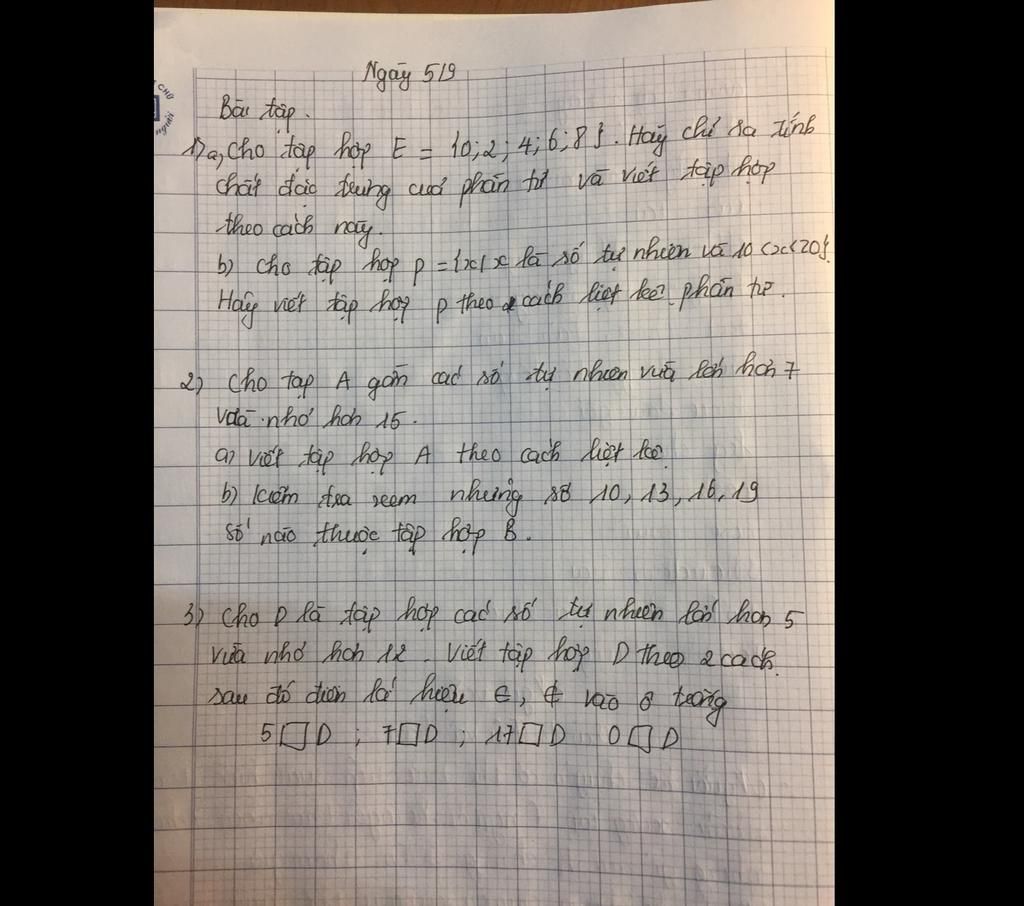 CHỮ
người
Ngày 5/9
Bài tập.
1) a, Cho tập hợp E = {0; 2; 4; 6; 8}. Hãy chỉ ra tính
chất đặc trưng của phần tử và viết tập hợp
theo cách này.
b) Cho tập hợp P = {x | x là số tự nhiên và 10 < x < 20}.
Hãy viết tập hợp P theo cách liệt kê phần tử.
2) Cho tập A gồm các số tự nhiên vừa lớn hơn 7
vừa nhỏ hơn 15.
a) Viết tập hợp A theo cách liệt kê
b) Kiểm tra xem những số 10, 13, 16, 19
số nào thuộc tập hợp B.
3) Cho D là tập hợp các số tự nhiên lớn hơn 5
vừa nhỏ hơn 12. Viết tập hợp D theo 2 cách.
sau đó điền kí hiệu ∈, ∉ vào ô trống
5 □ D ; 7 □ D ; 17 □ D 0 □ D